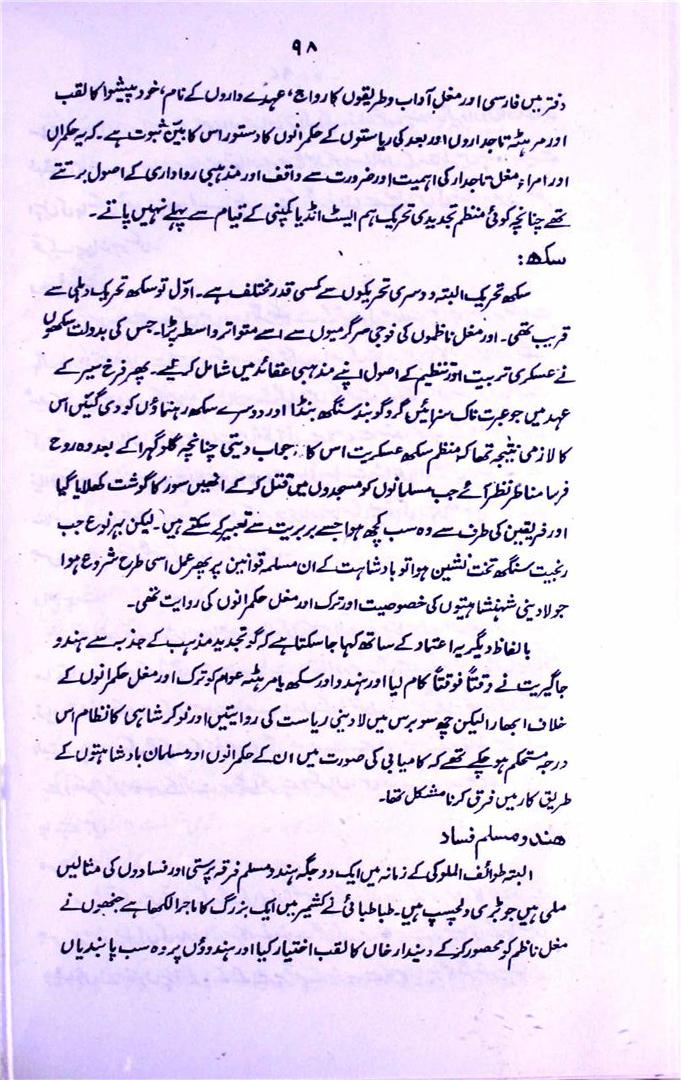 ۹۸
دفتر میں فارسی اور مغل آداب و طریقوں کا رواج، عہدے داروں کے نام، خود پیشوا کا لقب
اور مرہٹہ تاجداروں اور بعد کی ریاستوں کے حکمرانوں کا دستور اس کا بیّن ثبوت ہے۔ کہ یہ حکمراں
اور امراء مغل تاجدار کی اہمیت اور ضرورت سے واقف اور مذہبی رواداری کے اصول برتتے
تھے چنانچہ کوئی منظم تجدیدی تحریک ہم ایسٹ انڈیا کمپنی کے قیام سے پہلے نہیں پاتے۔
سکھ:
سکھ تحریک البتہ دوسری تحریکوں سے کسی قدر مختلف ہے۔ اوّل تو سکھ تحریک دہلی سے
قریب تھی۔ اور مغل ناظموں کی فوجی سرگرمیوں سے اسے متواتر واسطہ پڑا۔ جس کی بدولت سکھوں
نے عسکری تربیت اور تنظیم کے اصول اپنے مذہبی عقائد میں شامل کر لیے۔ پھر فرخ سیر کے
عہد میں جو عبرت ناک سزائیں گرو گوبند سنگھ بنڈا اور دوسرے سکھ رہنماؤں کو دی گئیں اس
کا لازمی نتیجہ تھا کہ منظم سکھ عسکریت اس کا جواب دیتی چنانچہ گلو گہرا کے بعد وہ روح
فرسا مناظر نظر آئے جب مسلمانوں کو مسجدوں میں قتل کر کے انھیں سور کا گوشت کھلایا گیا
اور فریقین کی طرف سے وہ سب کچھ ہوا جسے بربریت سے تعبیر کر سکتے ہیں۔ لیکن بہر نوع جب
رنجیت سنگھ تخت نشین ہوا تو بادشاہت کے ان مسلمہ قوانین پر پھر عمل اسی طرح شروع ہوا
جو لادینی شہنشاہیتوں کی خصوصیت اور ترک اور مغل حکمرانوں کی روایت تھی۔
بالفاظ دیگر یہ اعتماد کے ساتھ کہا جا سکتا ہے کہ گو تجدید مذہب کے جذبہ سے ہندو
جاگیریت نے وقتاً فوقتاً کام لیا اور ہندو اور سکھ یا مرہٹہ عوام کو ترک اور مغل حکمرانوں کے
خلاف ابھارا لیکن چھ سو برس میں لادینی ریاست کی روایتیں اور نوکر شاہی کا نظام اس
درجہ مستحکم ہو چکے تھے کہ کامیابی کی صورت میں ان کے حکمرانوں اور مسلمان بادشاہتوں کے
طریق کار میں فرق کرنا مشکل تھا۔
ھندو مسلم فساد
البتہ طوائف الملوکی کے زمانہ میں ایک دو جگہ ہندو مسلم فرقہ پرستی اور فسادوں کی مثالیں
ملی ہیں جو بڑی دلچسپ ہیں۔ طباطبائی نے کشمیر میں ایک بزرگ کا ماجرا لکھا ہے جنھوں نے
مغل ناظم کو محصور کر کے دیندار خاں کا لقب اختیار کیا اور ہندوؤں پر وہ سب پابندیاں